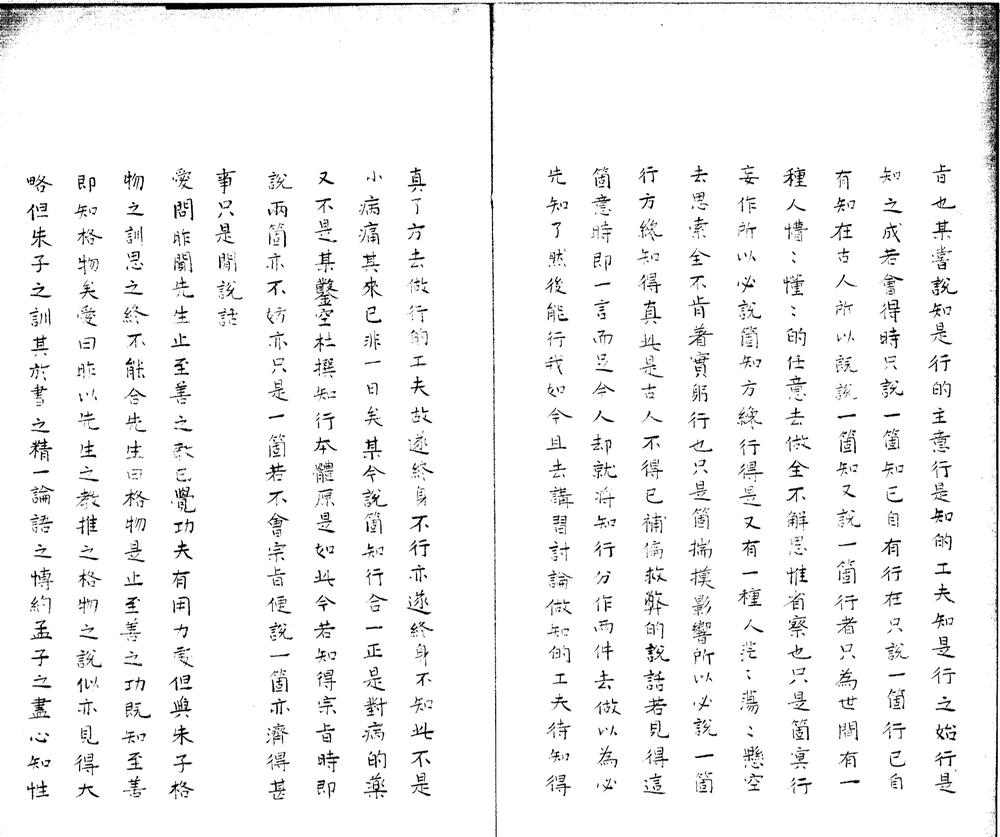 㫖也某嘗說知是行的主意行是知的工夫知是行之始行是
知之成若會得時只說一箇知已自有行在只說一箇行已自
有知在古人所以旣說一箇知又說一箇行者只為世間有一
種人懵〻懂〻的任意去做全不解思惟省察也只是箇冥行
妄作所以必說箇知方纔行得是又有一種人茫〻蕩〻懸空
去思索全不肯着實躬行也只是箇揣摸影響所以必說一箇
行方纔知得真此是古人不得已補偏救弊的說話若見得這
箇意時即一言而足今人却就將知行分作兩件去做以為必
先知了然後能行我如今且去講習討論做知的工夫待知得
真了方去做行的工夫故遂終身不行亦遂終身不知此不是
小病痛其來已非一日矣某今說箇知行合一正是對病的藥
又不是某鑿空杜撰知行本體原是如此今若知得宗㫖時即
說兩箇亦不妨亦只是一箇若不會宗㫖便說一箇亦濟得甚
事只是閒說話
愛問昨聞先生止至善之教已覺功夫有用力處但與朱子格
物之訓思之終不能合先生曰格物是止至善之功既知至善
即知格物矣愛曰昨以先生之教推之格物之說似亦見得大
略但朱子之訓其於書之精一論語之博約孟子之盡心知性